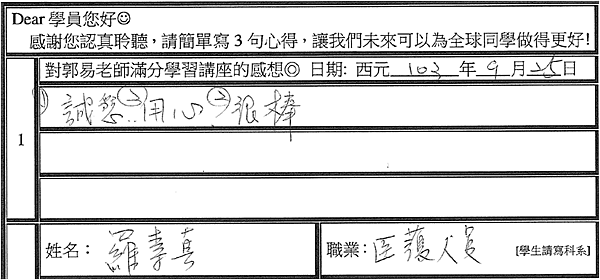 Dear 學員您好☺
感謝您認真聆聽，請簡單寫3句心得，讓我們未來可以為全球同學做得更好!
對郭易老師滿分學習講座的感想◎ 日期: 西元 103 年 9 月 25 日
1
(1) 誠懇 (2) 用心 (3) 很棒
姓名： 羅素真
職業： 医護人員 [學生請寫科系]